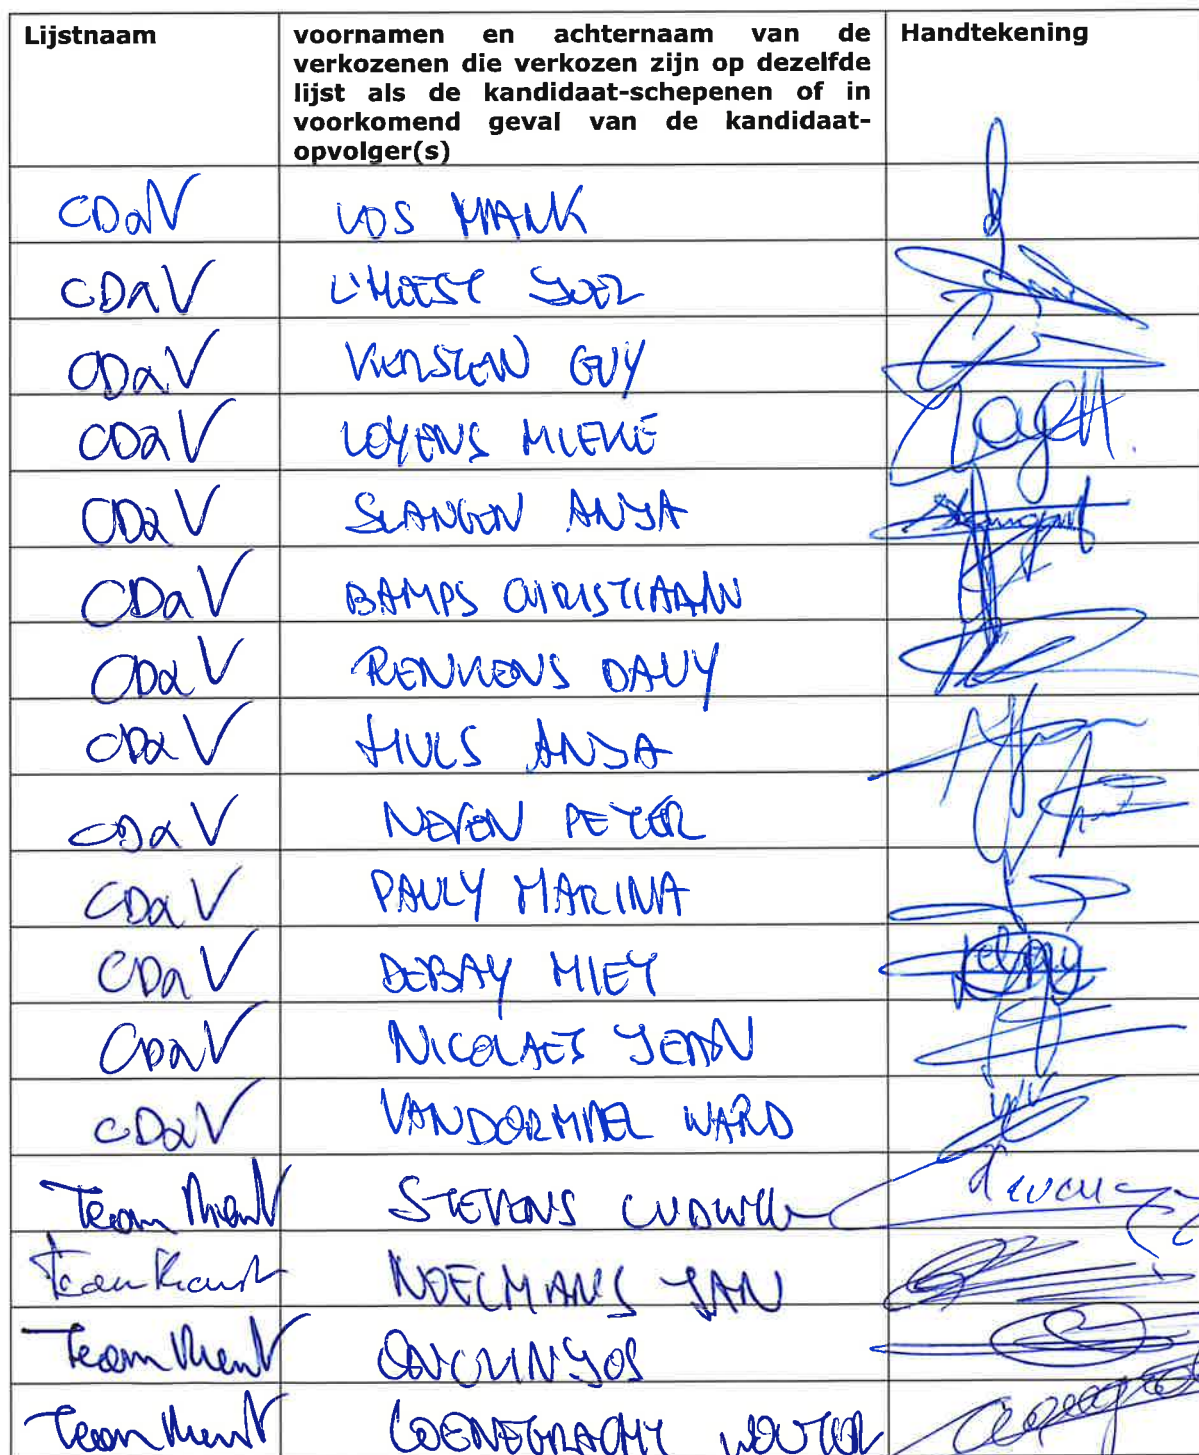 Lijstnaam
voornamen en achternaam van de
verkozenen die verkozen zijn op dezelfde
lijst als de kandidaat-schepenen of in
voorkomend geval van de kandidaat-
opvolger(s)
Handtekening
CD&V VOS MARK
CD&V L'HOEST JOËL
CD&V KERSTEN GUY
CD&V LOYENS MIEKE
CD&V SLANGEN ANJA
CD&V BAMPS CHRISTIAAN
CD&V RENKENS DAVY
CD&V HULS ANJA
CD&V NEVEN PETER
CD&V PAULY MARINA
CD&V DEBAY MIET
CD&V NICOLAES JEAN
CD&V VANDORMAEL WARD
Team STEVENS LUDWIG
Team NOELMANS JAN
Team JOS
Team COENEGRACHT WOUTER